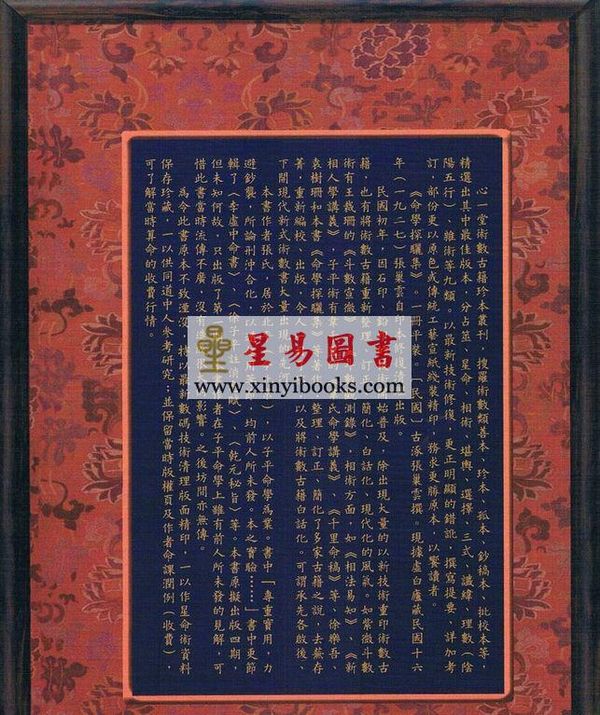 心一堂術數古籍珍本叢刊　搜羅術數類善本、珍本、孤本、鈔稿本、批校本等，
精選出其中最佳版本，分占筮、星命、相術、堪輿、選擇、三式、讖緯、理數（陰
陽五行）、雜術等九類。以最新技術修復，更正明顯的錯訛，撰寫提要、詳加考
訂，部份更以原色或傳統工藝宣紙綫裝精印，務求更勝原本，以饗讀者。
《命學探驪集》，一冊平裝。（民國）古涿張巢雲撰。現據虛白廬藏民國十六
年（一九二七）張巢雲自印本
出版。
民國初年，因石印、
始普及，除出現大量的以新技術重印術數古
籍，也有將術數古籍重新整理
簡化、白話化、現代化的風氣。如紫微斗數
術有王裁珊的《斗數宣微》
測錄》，相術方面，如《相法易知》、《新
相人學講義》，子平術有
氏命學講義》、《千里命稿》等、徐樂吾
袁樹珊和本書《命學探驪集》
整理、訂正、簡化了多家古籍之說，去蕪存
菁，重新編校、出版，令人
以及將術數古籍白話化。可謂承先各啟後、
下開現代新式術數書大量出
本書作者張氏，居於北
以子平命學為業。書中「尊重實用，力
避鈔襲。所論刑沖合化，以
均前人所未發。本之實驗……」書中更節
輯了《李虛中命書》、《徐子
》、《乾元秘旨》等。本書原擬出版四期，
但未知何故，只出版了第
者在子平命學上雖有前人所未發的見解，可
惜此書當時流傳不廣，沒有
影響。之後坊間亦無傳。
為令此書原本不致湮沒，特以最新數碼技術清理版面精印，一以作星命術資料
保存珍藏，一以供同道中人參考研究；並保留當時版權頁及作者命課潤例（收費），
可了解當時算命的收費行情。
星易圖書
www.xinyibooks.com